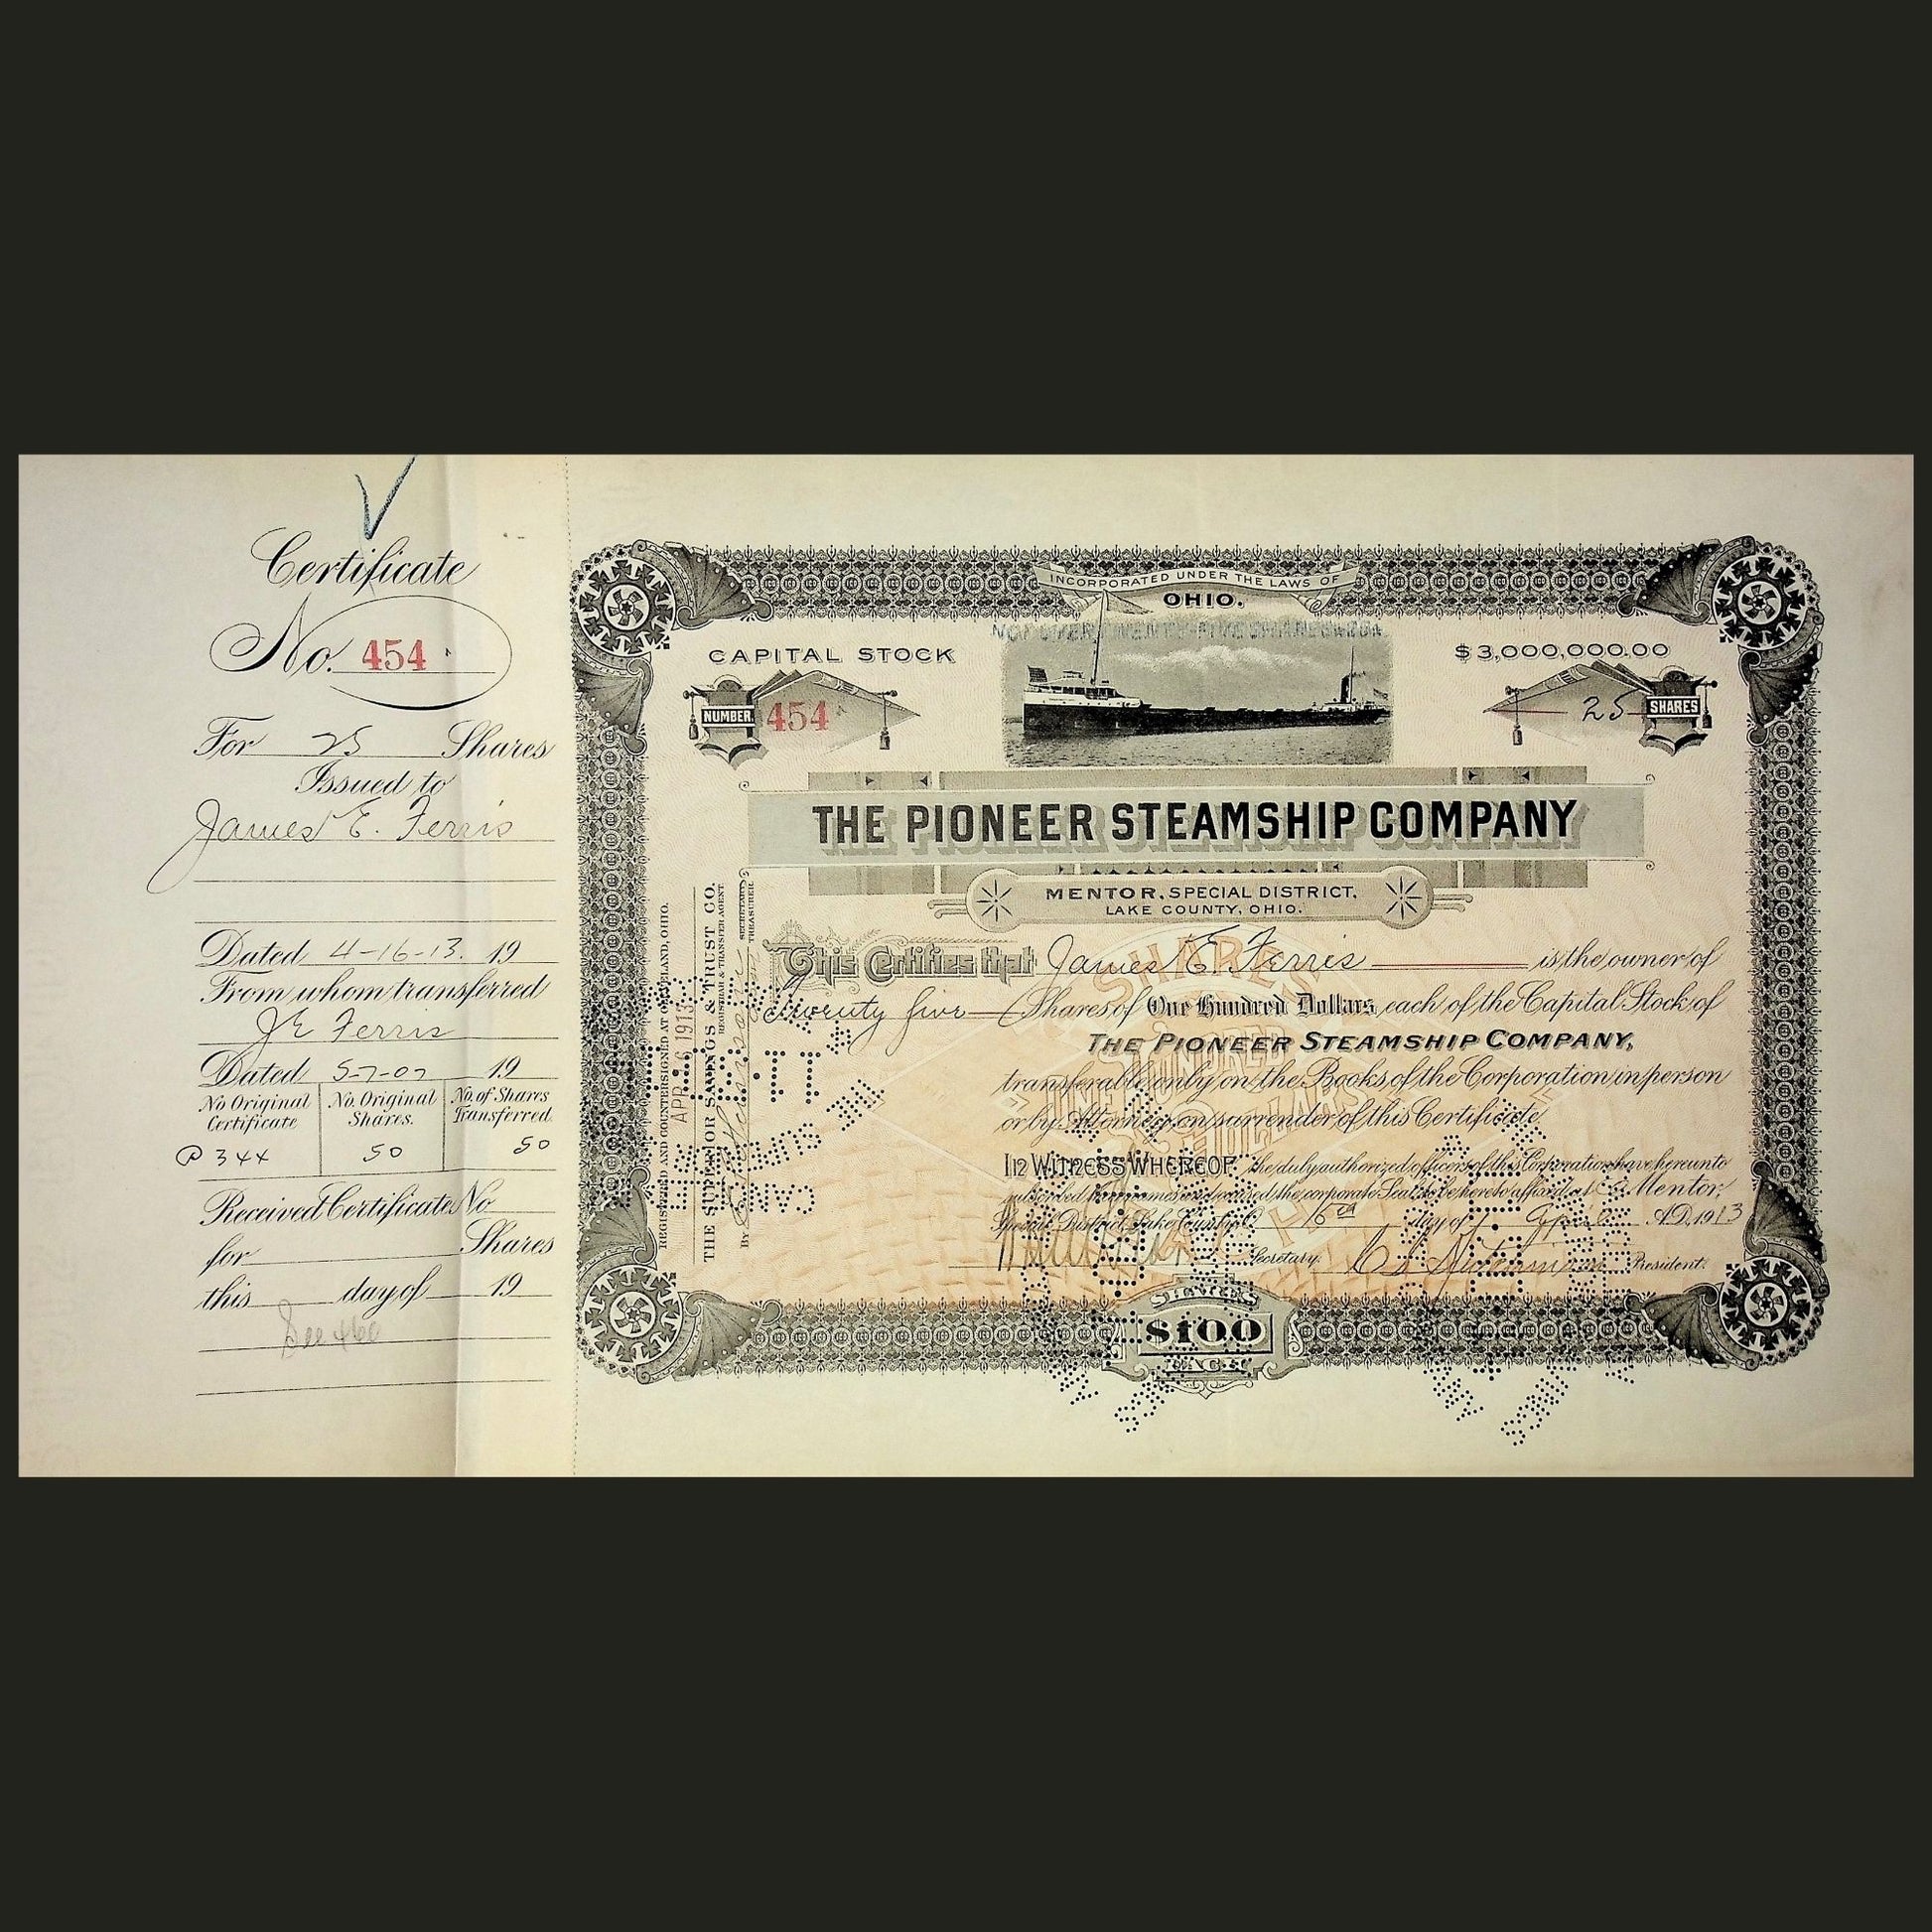 Certificate
No. 454
For 25 Shares
Issued to
James E. Ferris
Dated 4-16-13. 19
From whom transferred
J E Ferris
Dated 5-7-07 19
No Original Certificate
No. Original Shares.
No. of Shares Transferred.
P 344
50
50
Received Certificate No
for Shares
this day of 19
See 460
INCORPORATED UNDER THE LAWS OF
OHIO.
NOT OVER TWENTY-FIVE SHARES
CAPITAL STOCK
$3,000,000.00
NUMBER 454
25 SHARES
THE PIONEER STEAMSHIP COMPANY
MENTOR, SPECIAL DISTRICT,
LAKE COUNTY, OHIO.
This Certifies that James E. Ferris is the owner of
Twenty five Shares of One Hundred Dollars each of the Capital Stock of
THE PIONEER STEAMSHIP COMPANY,
transferable only on the Books of the Corporation in person
or by Attorney on surrender of this Certificate.
IN WITNESS WHEREOF, the duly authorized officers of this Corporation have hereunto
subscribed their names and caused the corporate Seal to be hereto affixed at Mentor,
Special District, Lake County, O. 16th day of April A.D. 1913
Secretary.
President.
SHARES
$100
EACH
REGISTERED AND COUNTERSIGNED AT CLEVELAND, OHIO.
APR 16 1913
THE SUPERIOR SAVINGS & TRUST CO.
REGISTRAR & TRANSFER AGENT
By
SECRETARY
TREASURER
SHARES
ONE HUNDRED
DOLLARS
EACH